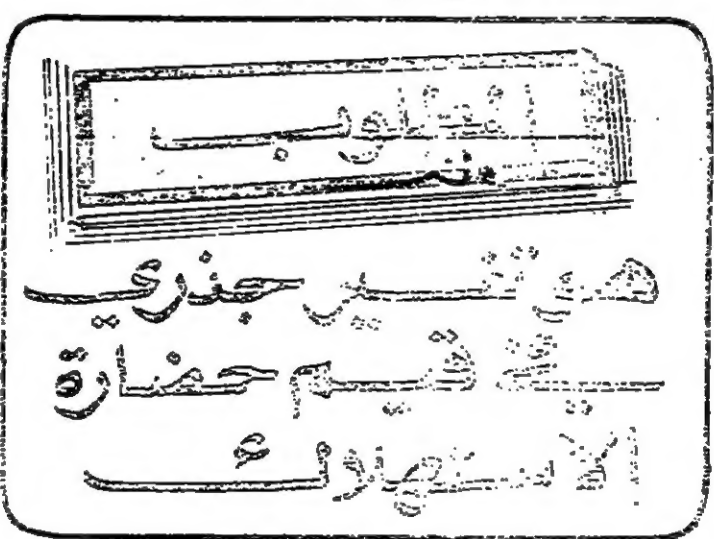 المطلوب
هو تغيير جذري
في قيم حضارة
الاستهلاك